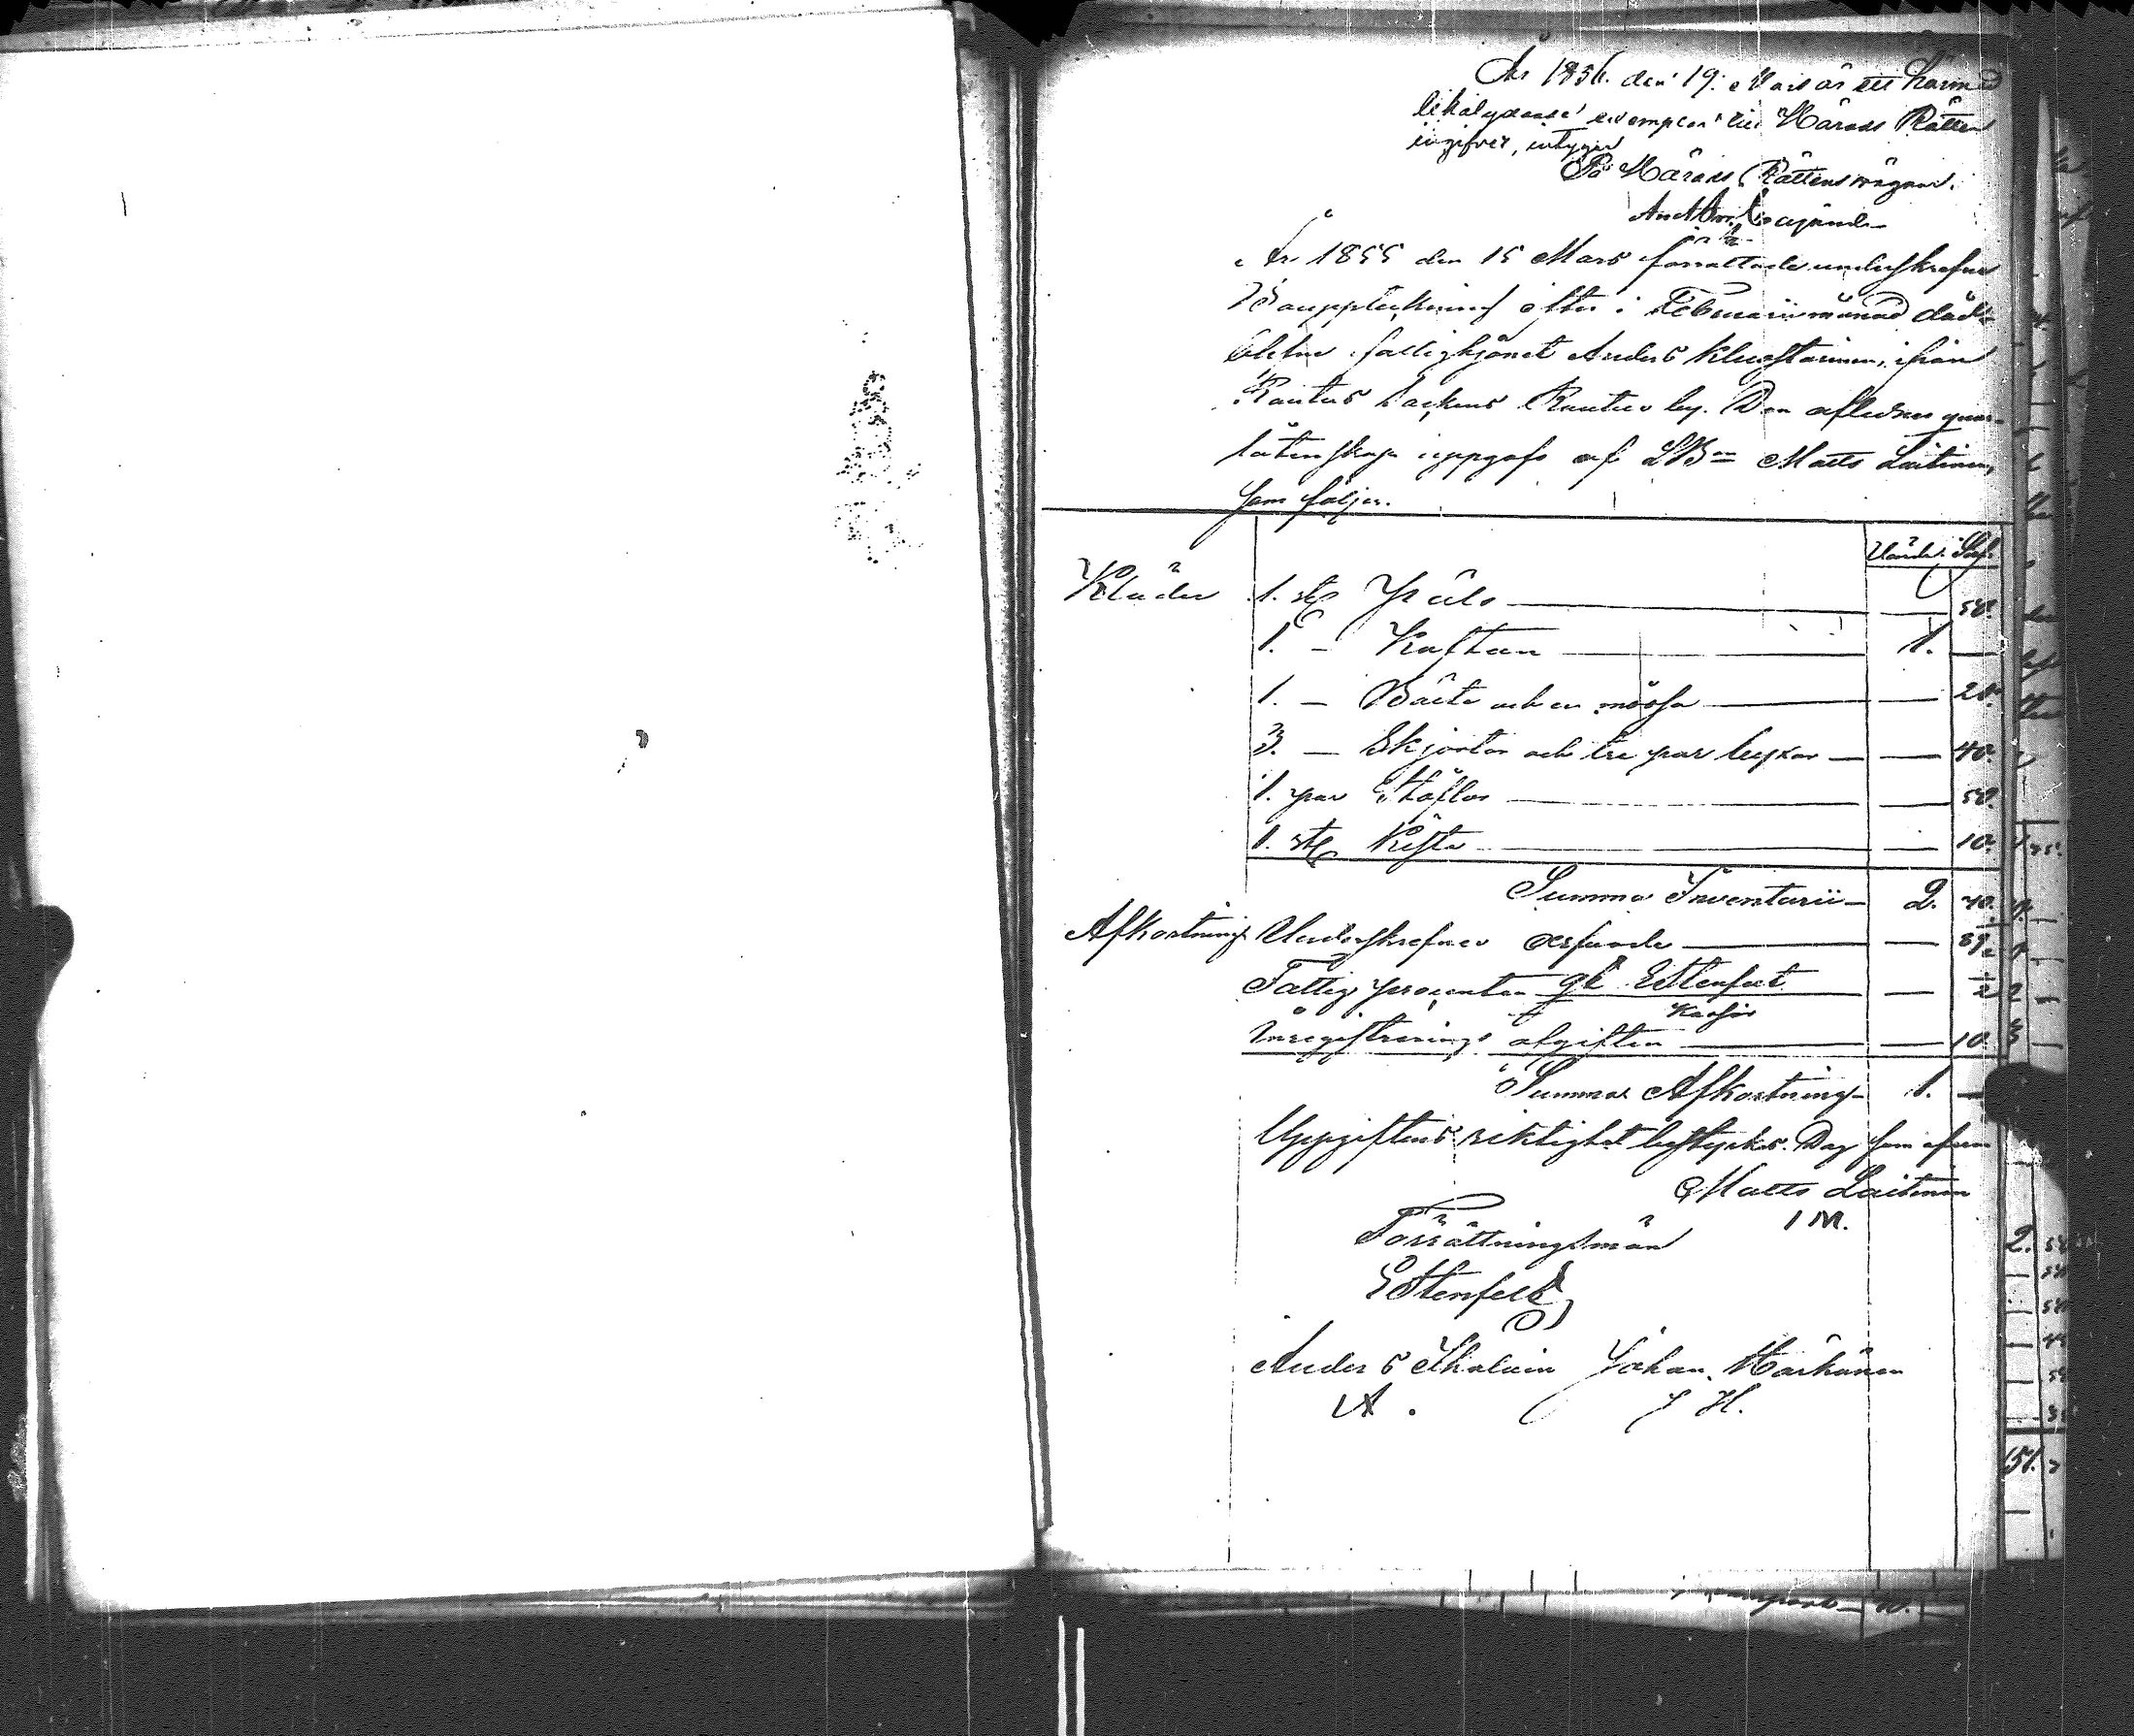 År 1856. den 19. Mars är ett härmed
likalydande exemplar till Härads Rätten
ingifvet, intygar
På Härads Rättens vägnar.
År 1855 den 15 Mars förrättade underskrefne
Bouppteckning efter i Februarii månad döde
fattighjonet Anders ifrån
Rautus Sockens Rautus by. Den aflidnes quar-
låtenskap uppgafs af LB:n Matts Laitinen,
som följer.
Silf.
Kläder 1. st. Päls — — 50.
1. — Kaftan — 1. —
1. — och en mössa — — 20.
3. — Skjortor och tre par byxor — — 40.
1. par Stöflor — — 50.
1. st. Kista — — 10.
Summa Inventarii — 2. 70.
Afkortning Underskrefnes arfvode — — 89 ½
Fattig procenten qt EStenfelt — — ½
Inregistrerings afgiften — — 10.
Summa Afkortning — 1. —
Uppgiftens riktighet bestyrkes. Dag som ofvan
Matts Laitinen
I M.
Förrättningsmän
EStenfelt
Anders Johan
A. J H.